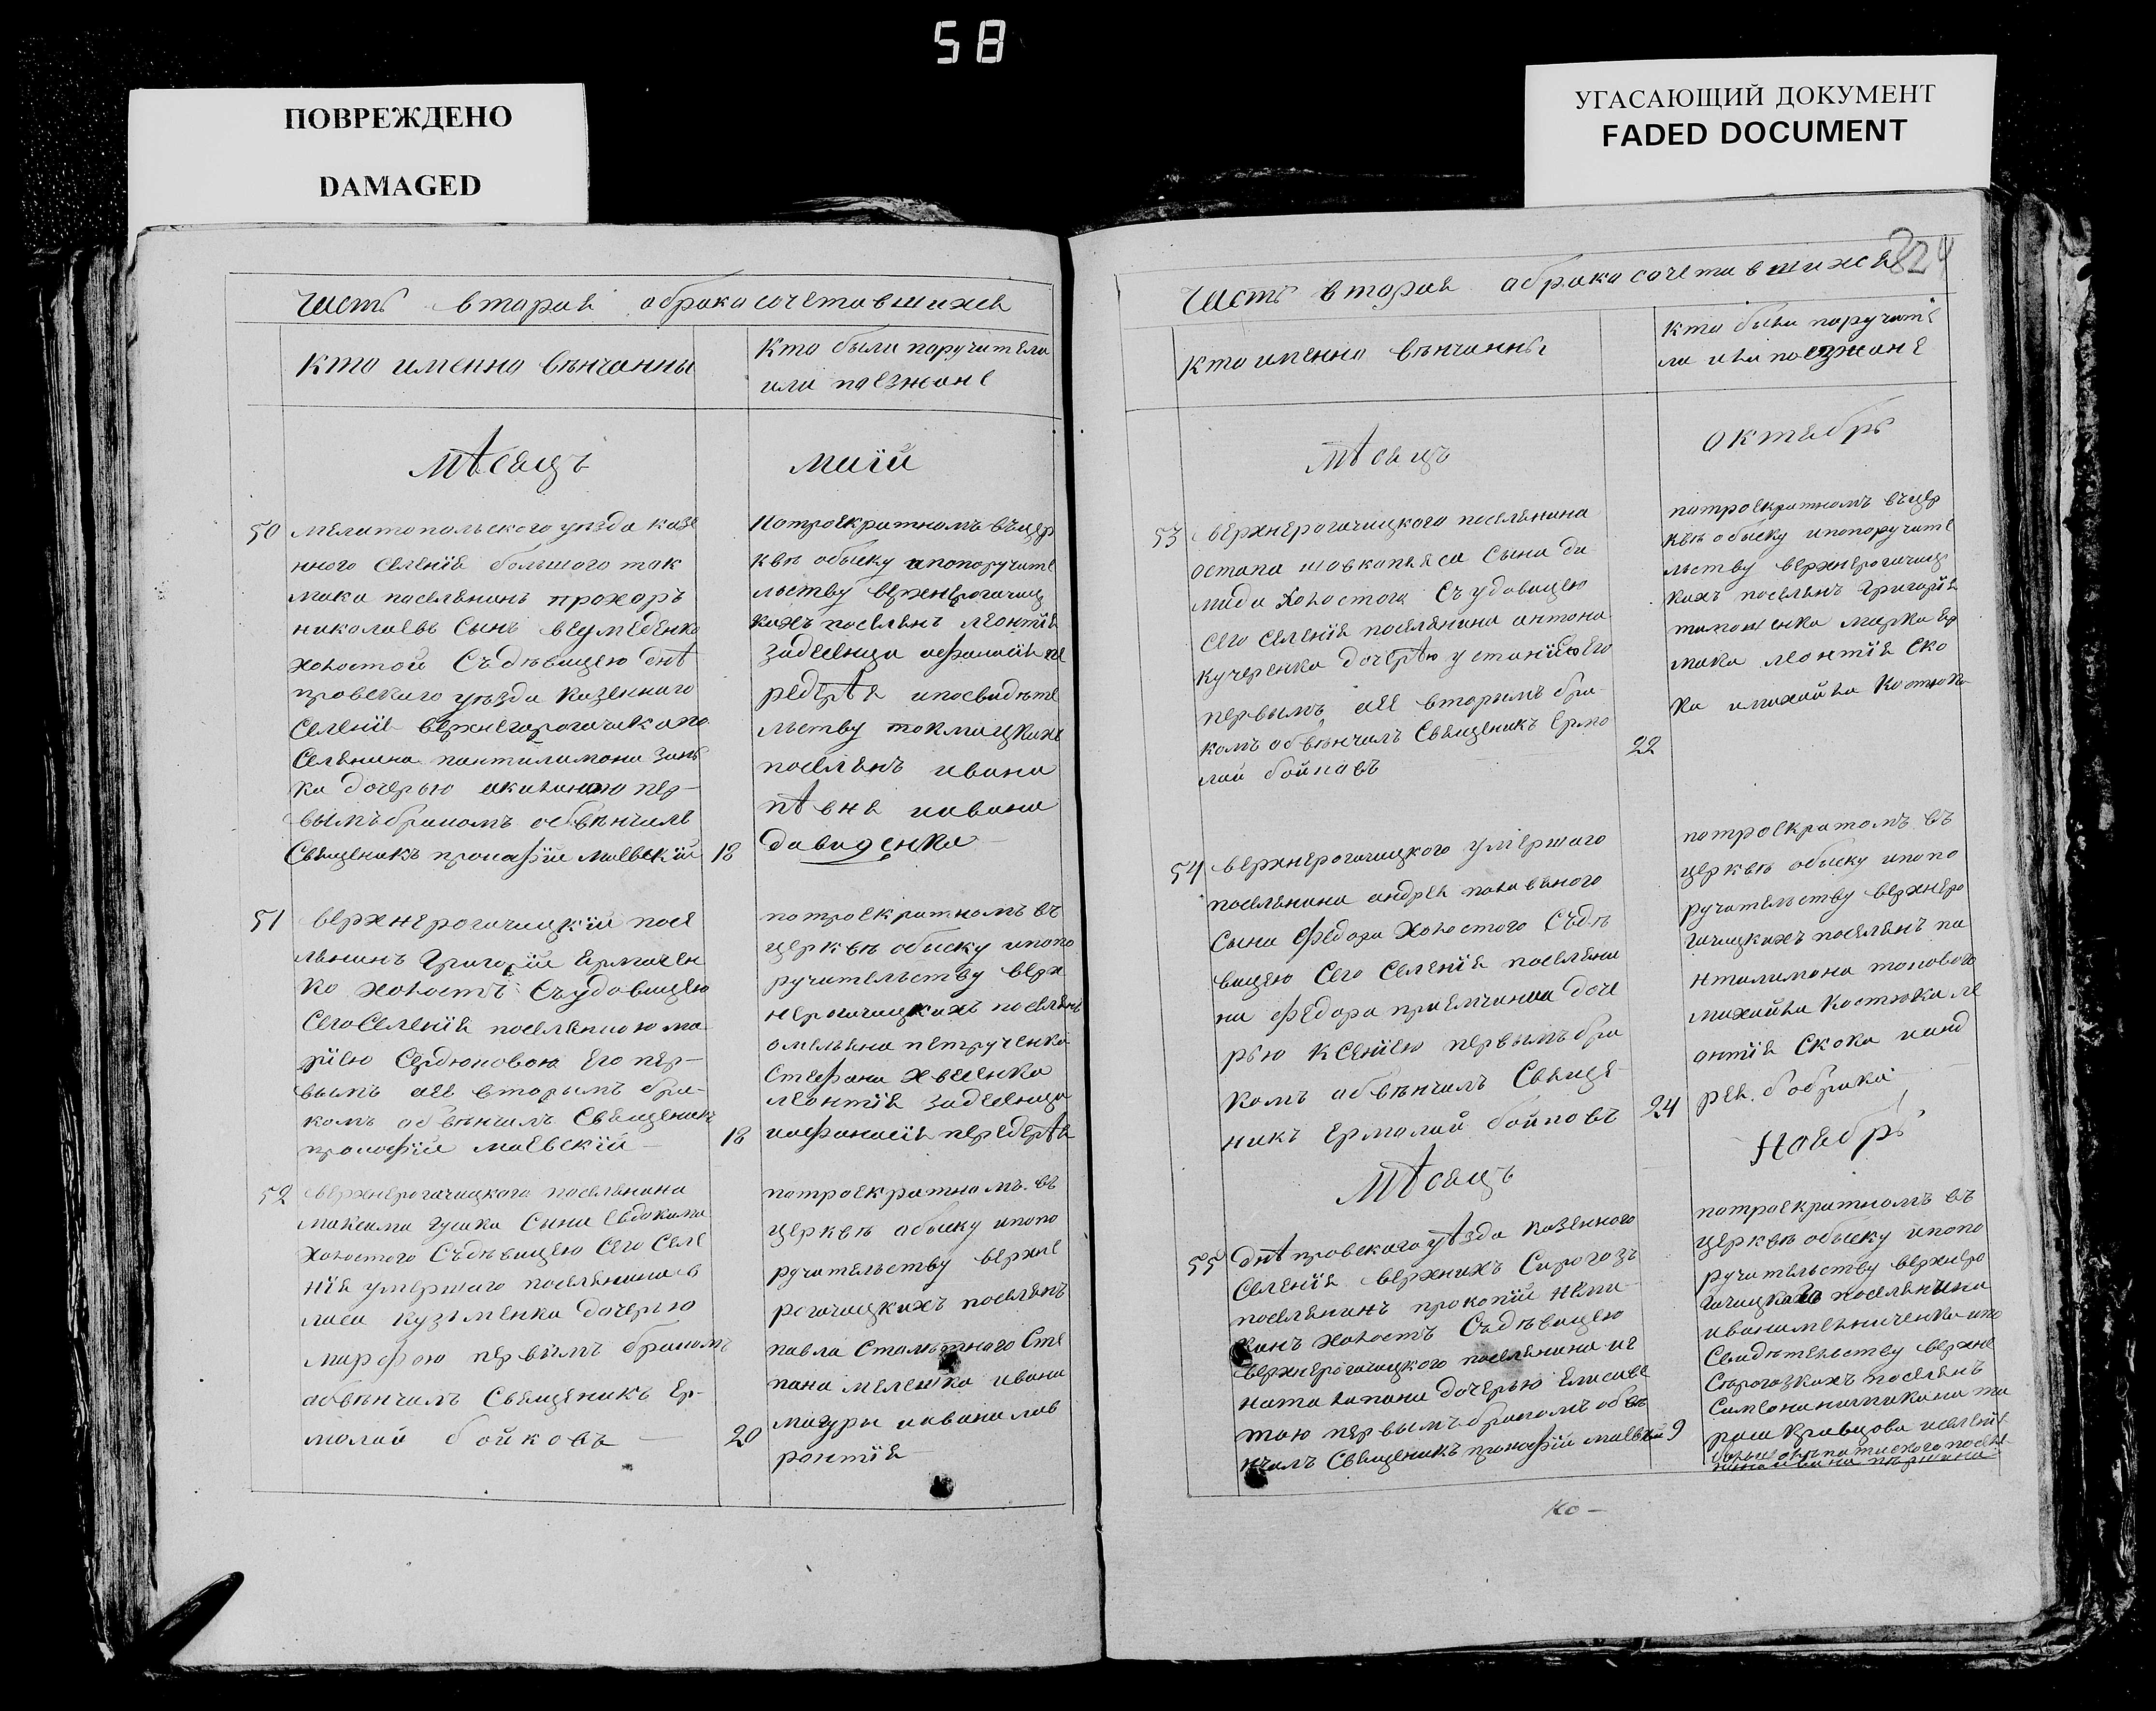 58
ПОВРЕЖДЕНО
DAMAGED
УГАСАЮЩИЙ ДОКУМЕНТ
FADED DOCUMENT
Часть вторая обракосочетавшихся
кто именно вѣнчанны
Кто были поручители
или поезжане
Мѣсяцъ
маій
50 мелитопольского уѣзда казе
нного селенія большого ток
мака поселянинъ прохоръ
николаевъ сынъ
холостой съ дѣвицею днѣ
провскаго уѣзда казеннаго
селенія
селянина пантилимона
ки дочерью первымъ
бракомъ обвѣнчалъ
Священикъ маевскій 18
потроекратномъ въ цер
квѣ обыску ипопоручите
льству верхнерогачиц
кихъ поселянъ леонтія
задесенца афанасія пе
редерѣя ипосвидѣте
льству токмацкихъ
поселянъ ивана
пѣвня иивана
давиденка
51 верхнерогачицкій посе
лянинъ григорій ермачен
ко холостъ съ удовицею
сего селенія поселянкою ма
ріею Сердюковою его пер-
вымъ аее вторымъ бра-
комъ обвѣнчалъ Священикъ
маевскій 18
потроекратномъ въ
церквѣ обыску ипопо
ручительству верх
нерогачицкихъ поселянъ
омельяна петрученка
Стефана
леонтія задесенца
иафанасія передерѣя
52 верхнерогачицкого поселянина
максима гушка сына евдокима
холостого съ дѣвицею сего селе
нія умершаго поселянина в
ласа кузьменка дочерью
марфою первымъ бракомъ
обвѣнчалъ Священикъ Ер-
молай бойковъ 20
потроекратномъ въ
церквѣ обыску ипопо
ручительству верхне
рогачицкихъ поселянъ
павла Сте
пана мелешка ивана
мигуры иивана лав
рентія
824
Часть вторая обракосочетавшихся
кто именно вѣнчанны
кто были поручите
ли или поезжане
Мѣсяцъ
октябрь
53 верхнерогачицкого поселянина
остапа шовкопляса сына
холостого съ удовицею
сего селенія поселянина антона
кучеренка дочерѣю устиніею его
первымъ аее вторымъ бра-
комъ обвѣнчалъ Священикъ Ермо
лай бойковъ 22
потроекратномъ въ цер
квѣ обыску ипопоручите
льству верхнерогачиц
кихъ поселянъ григорія
марка ер
мака леонтія ско
ка имихайла костюка
54 верхнерогачицкого умершаго
поселянина андрея поливяного
сына федора холостого съ дѣ
вицею сего селенія поселяни
на федора дочѣ
рью ксеніею первымъ бра
комъ обвѣнчалъ Священ
никъ ермолай бойковъ 24
потроекратомъ въ
церквѣ обыску ипопо
ручительству верхнеро
гачицкихъ поселянъ па
нтилимона
михайла костюка ле
онтія скока ианд
рея бобрика
Мѣсяцъ
Ноябрь
55 днѣпровского уѣзда казенного
селенія верхнихъ Сирогозъ
поселянинъ прокопій
холостъ съ дѣвицею
верхнерогачицкого поселянина иг
ната дочерью елисаве
тою первымъ бракомъ обвѣ
нчалъ Священикъ маевскій 9
потроекратномъ въ
церквѣ обыску ипопо
ручительству верхнеро
гачицкаго поселянина
ивана ипо
свидѣтельству верхне
сѣрогозкихъ поселянъ
Симеона
Кравцова
ко-